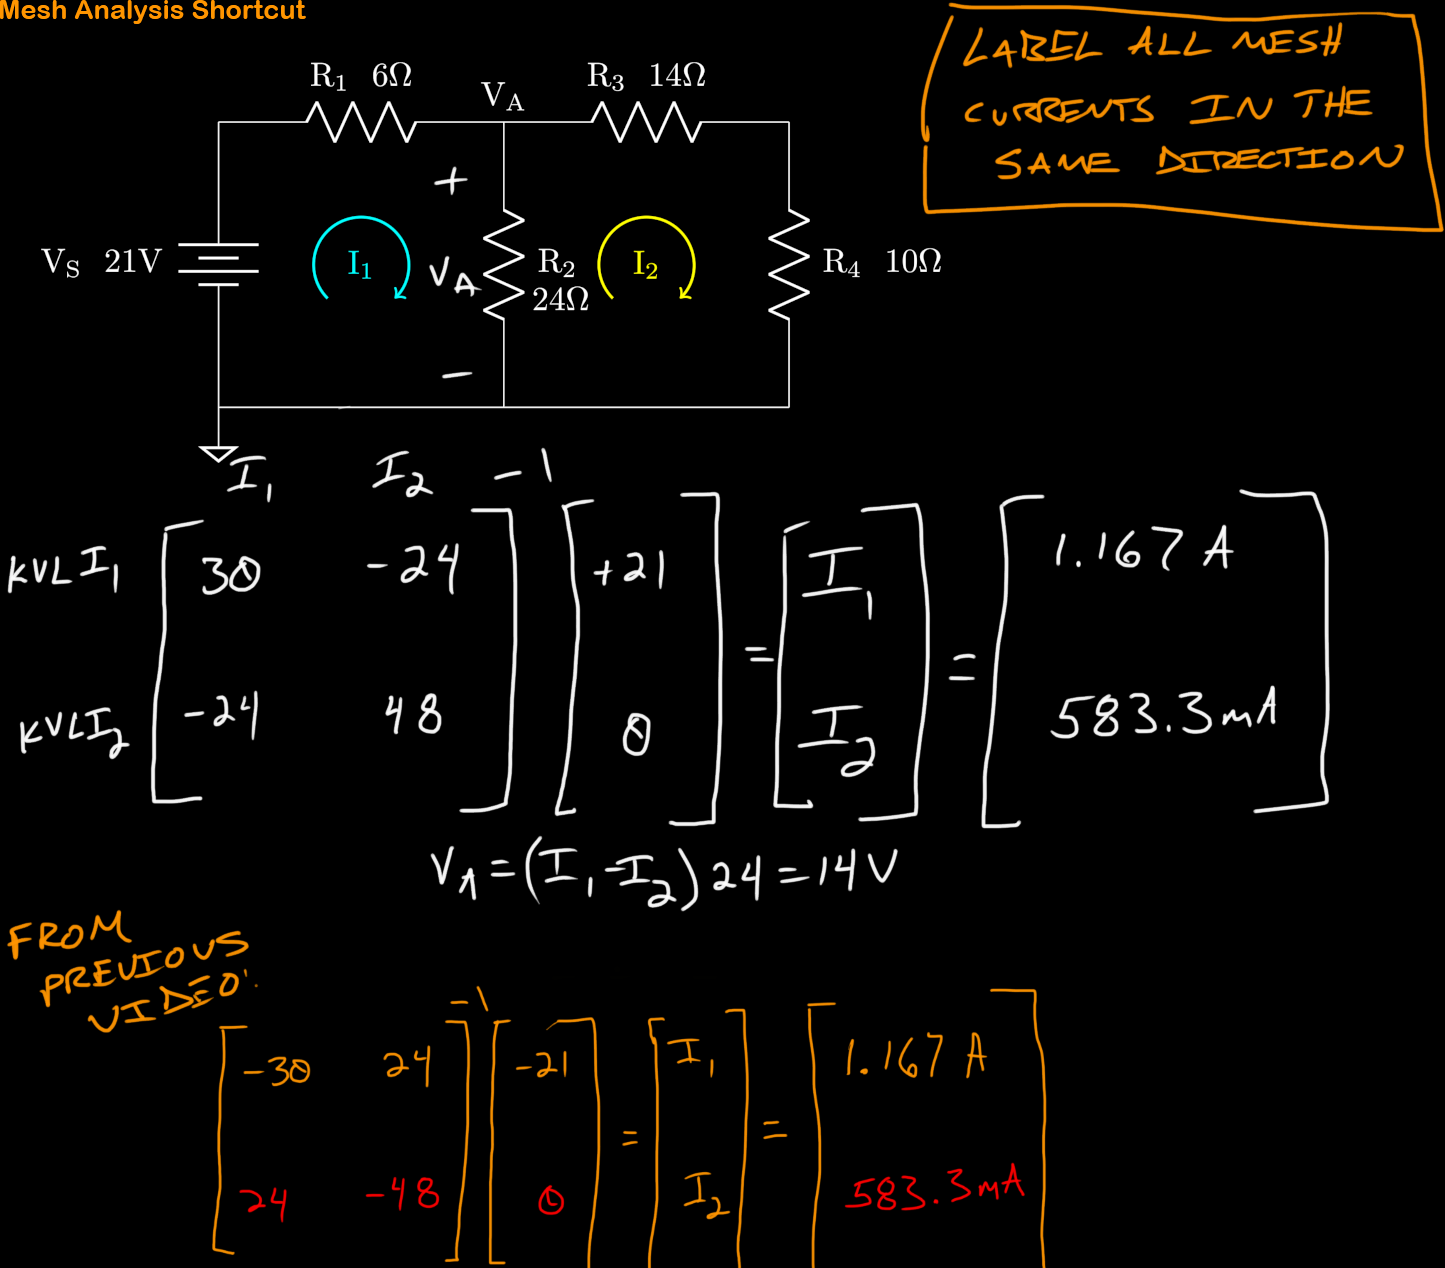 Mesh Analysis Shortcut
LABEL ALL MESH
CURRENTS IN THE
SAME DIRECTION
R1 6Ω
VA
R3 14Ω
+
VS 21V
I1
VA
R2
24Ω
I2
R4 10Ω
−
I1 I2 -1
KVL I1 30 -24 +21 I1 1.167 A
= =
KVL I2 -24 48 0 I2 583.3mA
VA = (I1 - I2) 24 = 14V
FROM
PREVIOUS
VIDEO:
-1
-30 24 -21 I1 1.167 A
= =
24 -48 0 I2 583.3mA